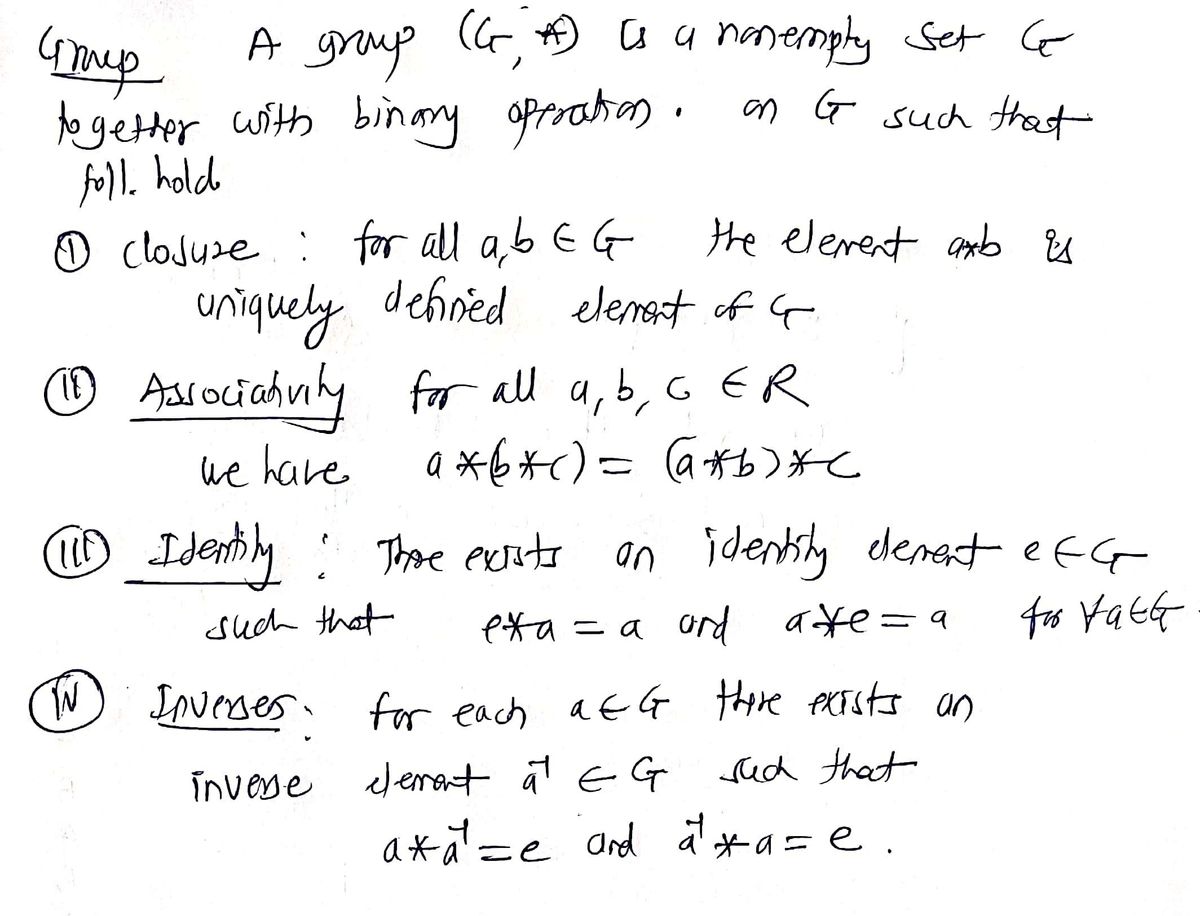 Group A group (G, *) is a nonempty set G
together with binary operation . on G such that
foll. hold
① closure : for all a, b ∈ G the element a*b is
uniquely defined element of G
② Associativity for all a, b, c ∈ R
we have a * (b * c) = (a * b) * c
③ Identity : There exists an identity element e ∈ G
such that e * a = a and a * e = a for ∀a ∈ G.
④ Inverses : for each a ∈ G there exists an
inverse element a⁻¹ ∈ G such that
a * a⁻¹ = e and a⁻¹ * a = e .